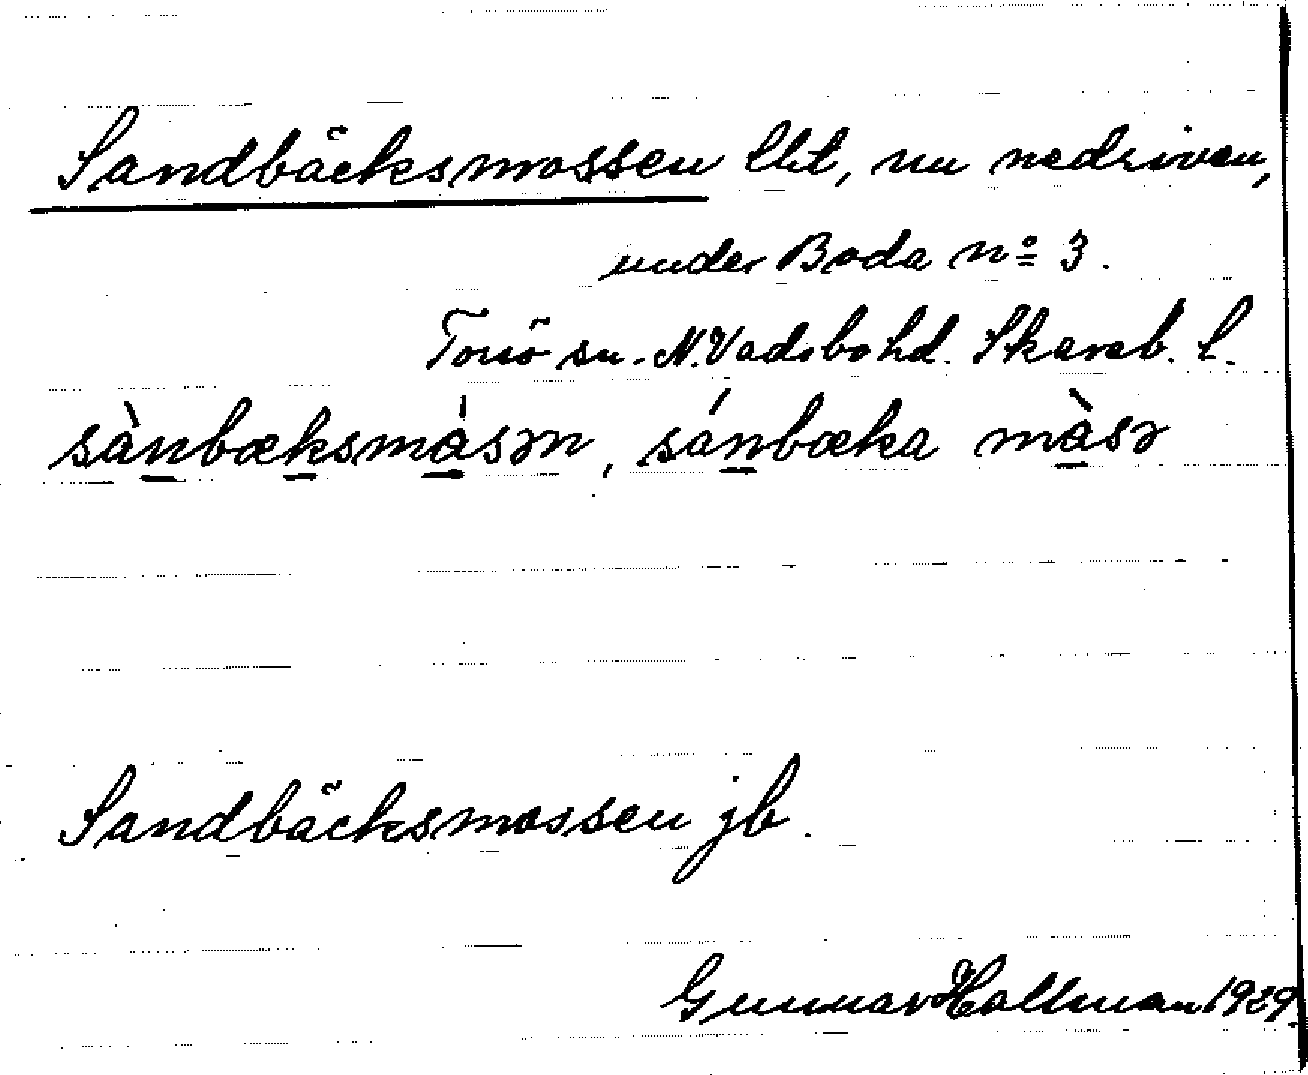 Sandbäcksmossen lht, nu nedriven,
under Boda nº 3.
Torsö sn. N. Vadsbo hd. Skarab. l.
sànbæksmåsən, sánbæka måsə
Sandbäcksmossen jb.
Gunnar Hallman 1929